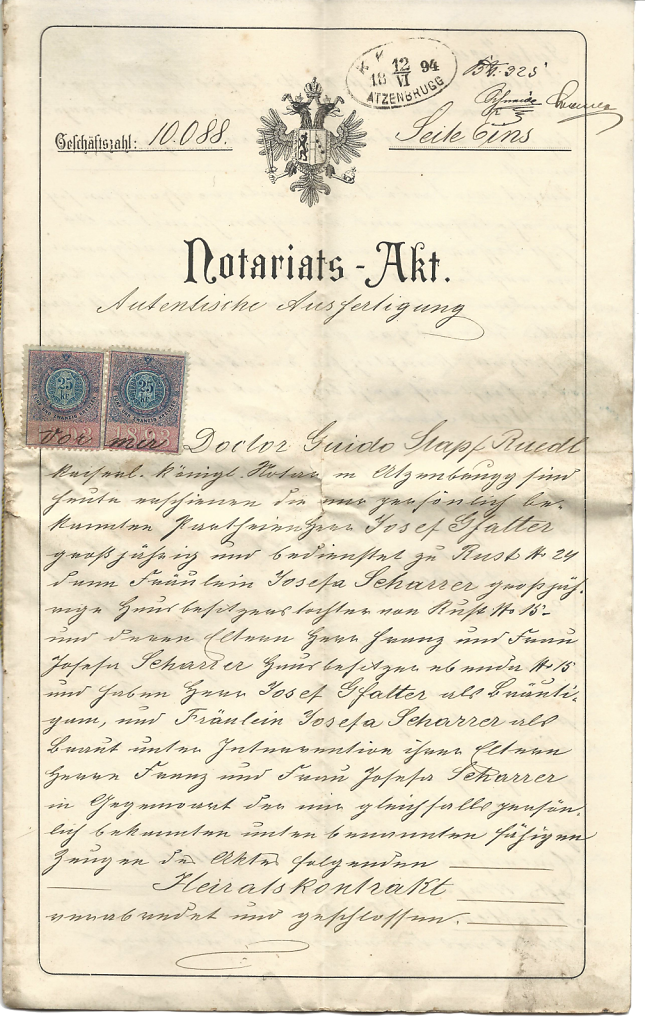 K. K.
12
18 VI 94
ATZENBRUGG
Geschäftszahl: 10.088.
Seite Eins
Notariats-Akt.
Autentische Ausfertigung
25 kr. 25 kr.
Vor mir Doctor Guido Stapf Ruedl
keiserl. königl. Notar in Atzenbrugg sind
heute erschienen die mir persönlich be-
kannten Partheien Herr Josef Gfatter
großjährig und bedienstet zu Rust № 24
dann Fräulein Josefa Scharrer großjäh-
rige Hausbesitzerstochter von Rust № 15-
und deren Eltern Herr Franz und Frau
Josefa Scharrer Hausbesitzer ebenda № 15
und haben Herr Josef Gfatter als Bräuti-
gam, und Fräulein Josefa Scharrer als
Braut unter Intervention ihrer Eltern
Herrn Franz und Frau Josefa Scharrer
in Gegenwart der mir gleichfalls persön-
lich bekannten unten benannten fähigen
Zeugen des Aktes folgenden
Heiratskontrakt
verabredet und geschlossen.